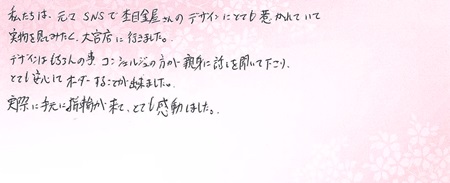 私たちは、元々SNSで杢目金屋さんのデザインにとても惹かれていて
実物を見てみたく、大宮店に行きました。
デザインはもちろんの事コンシェルジュの方が親身に話しを聞いて下さり、
とても安心してオーダーすることが出来ました。
実際に手元に指輪が来て、とても感動しました。